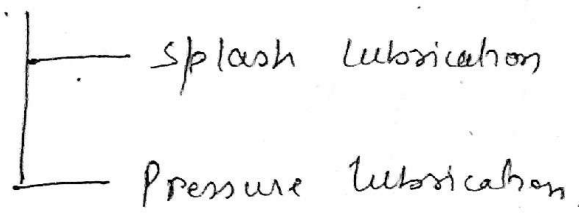 Splash Lubrication
Pressure lubrication